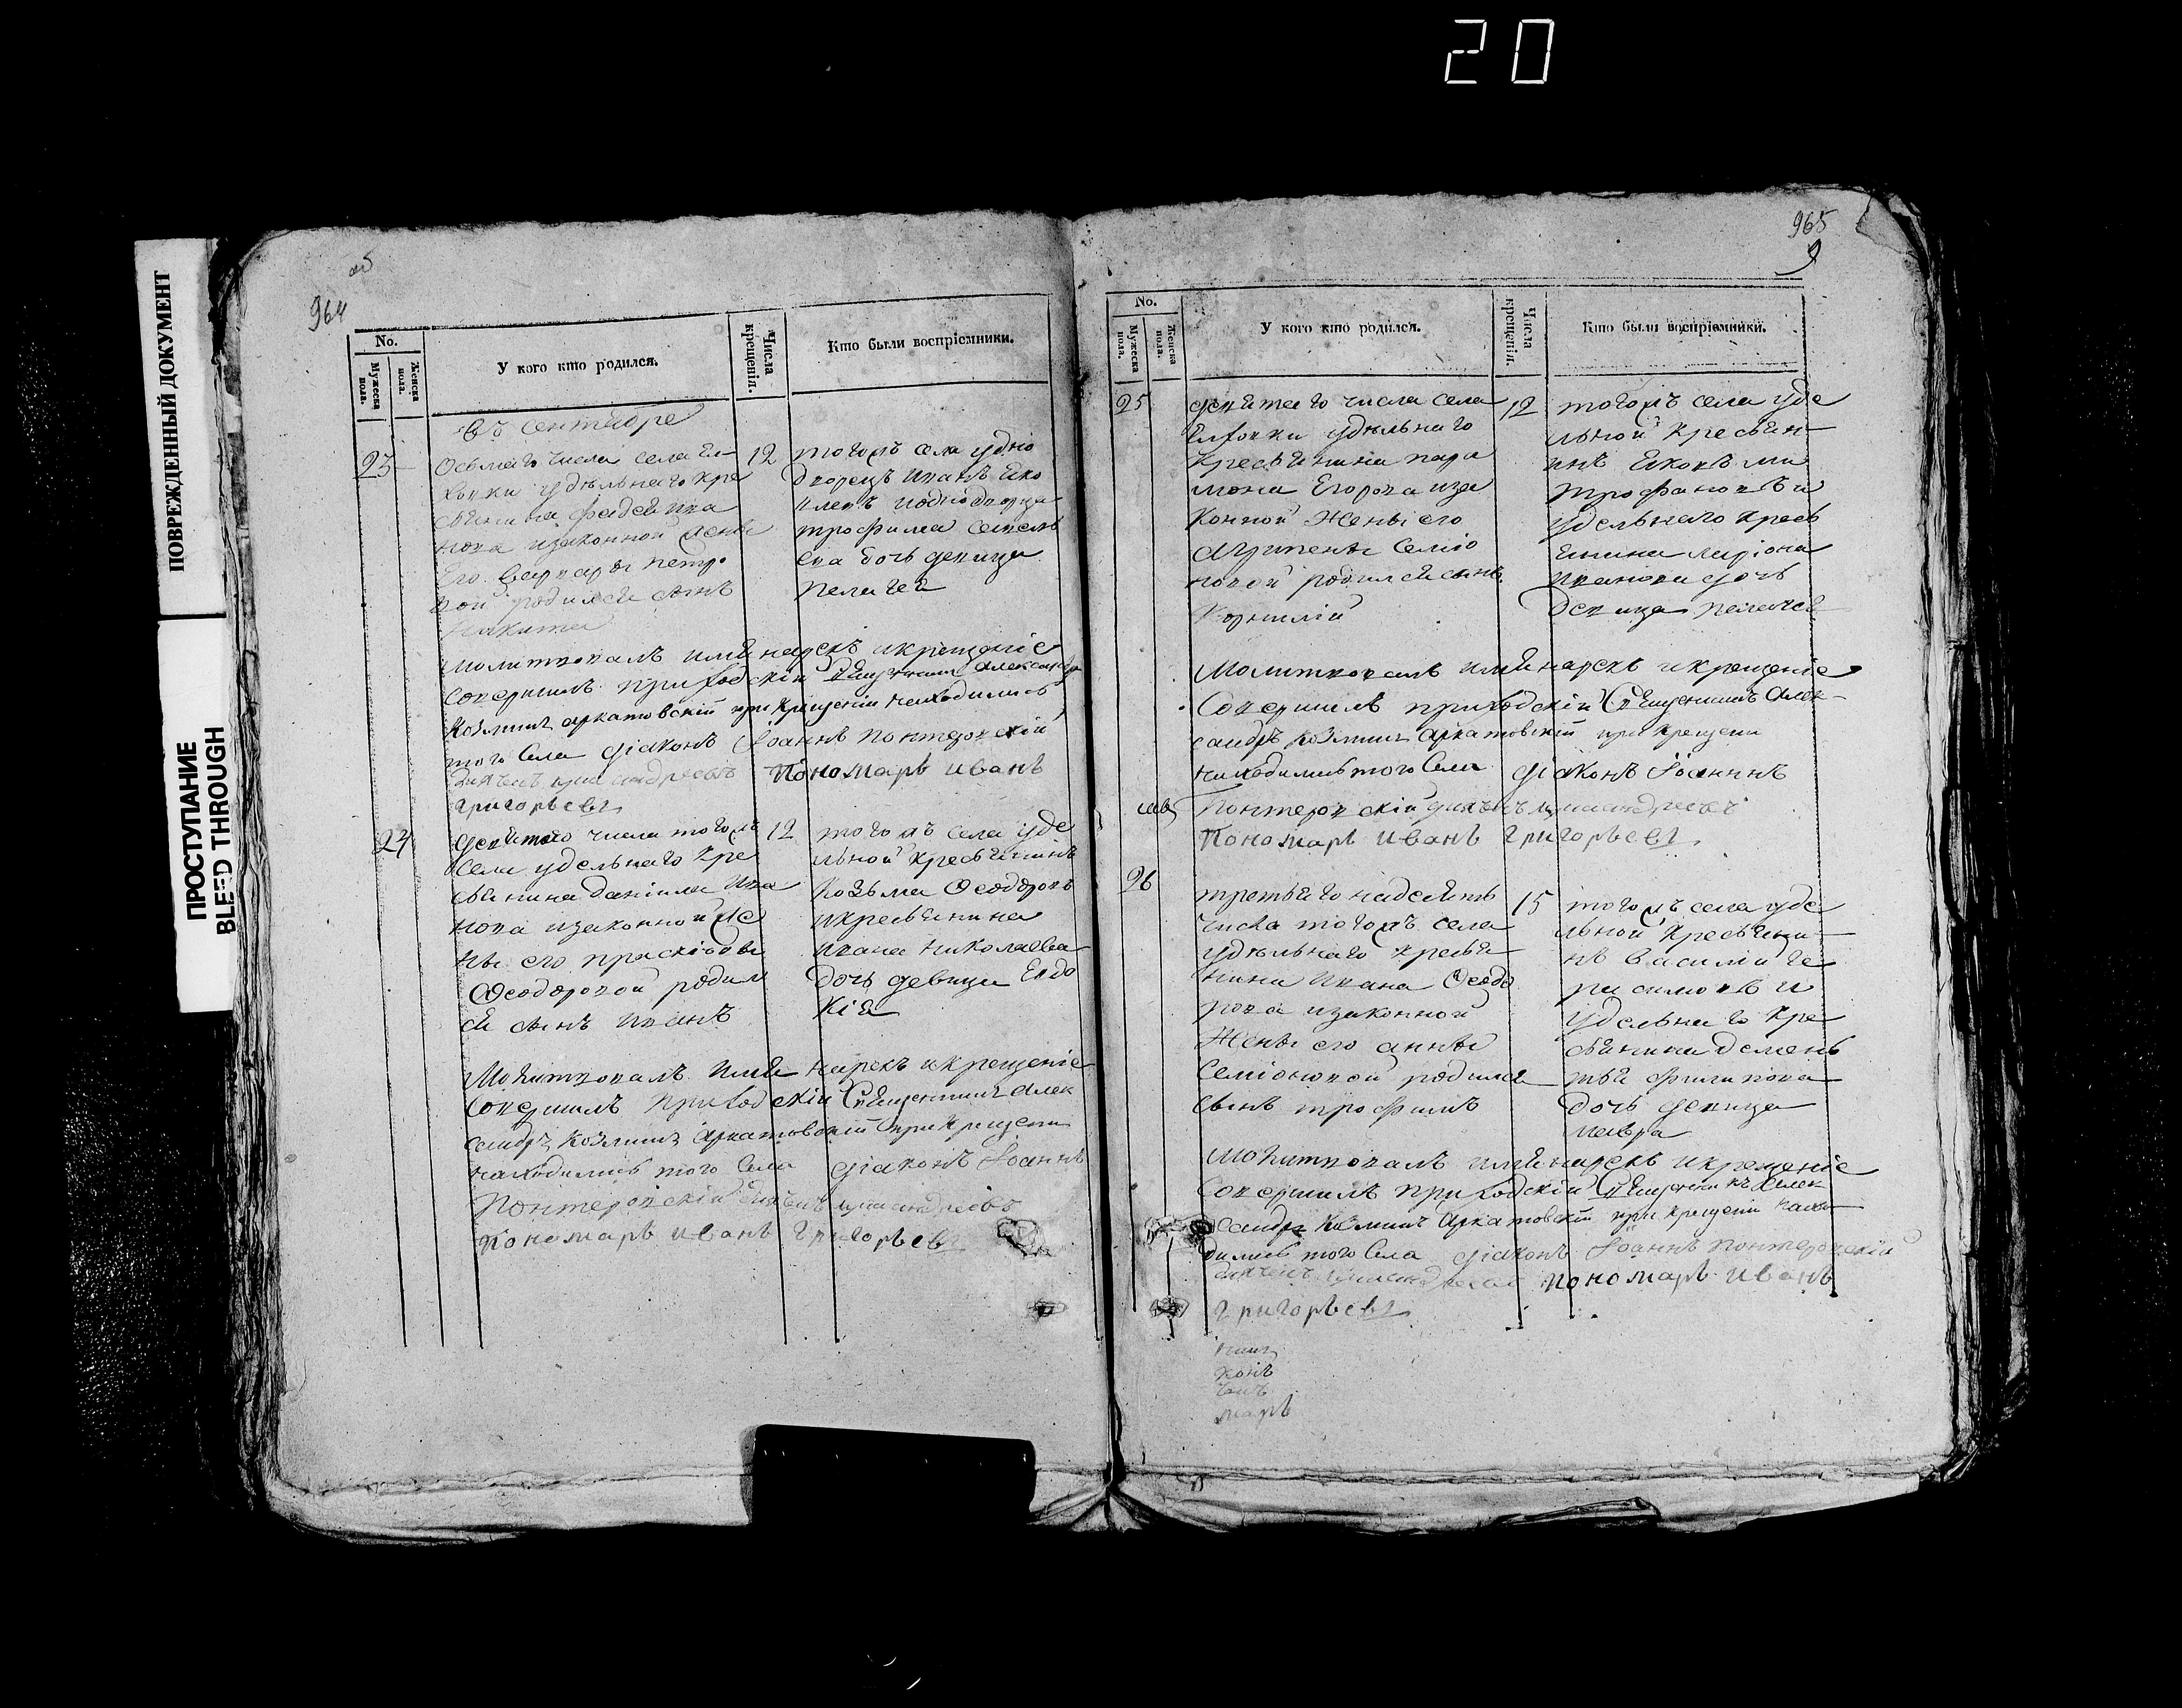 20
ПОВРЕЖДЕННЫЙ ДОКУМЕНТ
ПРОСТУПАНИЕ
BLEED THROUGH
964
об
No.
Мужеска пола.
Женска пола.
У кого кто родился.
Числа крещенія.
Кто были воспріемники.
въ сентябре
23
Осьмаго числа села Ел-
ховки удѣльнаго кре
стьянина Фадея Ива
нова изаконной жены
Его Варвары Петро
вой родился сынъ
Никита
12
тогожъ села удно
дворецъ Иванъ Яко
влевъ иоднодворца
трофима Савель
ева дочь девица
Пелагея
Молитвовалъ имя нарекъ икрещеніе
совершилъ приходскій Священникъ Александръ
Козминъ Аркатовскій при крещеніи находились
того Села діаконъ Іоаннъ Понтеровскій
Пономарь Иванъ
Григорьевъ
24
девятаго числа тогожъ
Села удельнаго кре
стьянина Даніила Ива
нова изаконной же
ны его праскѣовьи
Ѳеодоровой родил
ся сынъ Иванъ
12
тогожъ села уде
льной крестьянинъ
Козьма Ѳеодоровъ
икрестьянина
Ивана Николаева
дочь девица Евдо
кія
Молитвовалъ имя нарекъ икрещеніе
совершилъ приходскій Священникъ Алек
сандръ Козминъ Аркатовскій при крещени
находились того Села діаконъ Іоаннъ
Понтеровскій
Пономарь Иванъ Григорьевъ
965
9
No.
Мужеска пола.
Женска пола.
У кого кто родился.
Числа крещенія.
Кто были воспріемники.
25
девятаго числа села
Елховки удѣльнаго
крестьянина пара
мона Егорова иза
конной жены его
Агрипены Семіо
новой родился сынъ
Корнилій
12
тогожъ села уде
льной крестьян-
инъ Яковъ ми
трофановъ и
удельнаго кресть
янина ларіона
иванова дочь
девица пелагея
Молитвовалъ имя нарекъ икрещеніе
Совершилъ приходскій Священникъ Алек-
сандръ Козминъ Аркатовскій при крещени
находились того Села діаконъ Іоаннъ
Понтеровскій
Пономарь Иванъ Григорьевъ
26
третьяго надесять
числа тогожъ села
удѣльнаго крестья
нина Ивана Ѳеодо
рова изаконной
жены его анны
Семіоновой родился
сынъ трофимъ
15
тогожъ села уде
льной крестьяни-
нъ Василій ге
расимовъ и
удельнаго кре
стьянина демень
тья филипова
дочь девица
мавра
Молитвовалъ имя нарекъ икрещеніе
совершилъ приходскій Священникъ Алек
сандръ Козминъ Аркатовскій при крещеніи нахо
дились того Села діаконъ Іоаннъ Понтеровскій
Пономарь Иванъ
Григорьевъ
никъ
конъ
марь